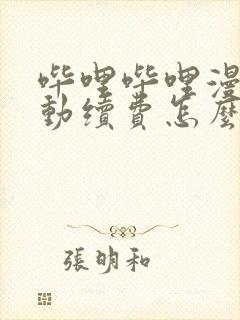 哔哩哔哩漫
動續費怎麼
張明和